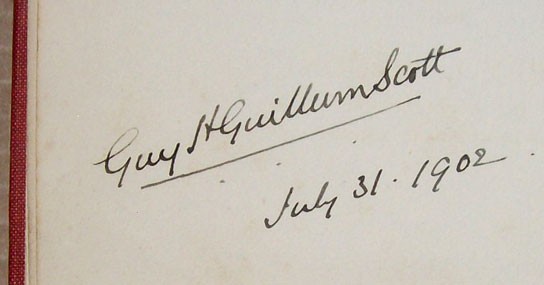 Guy H Guillum Scott
July 31. 1902